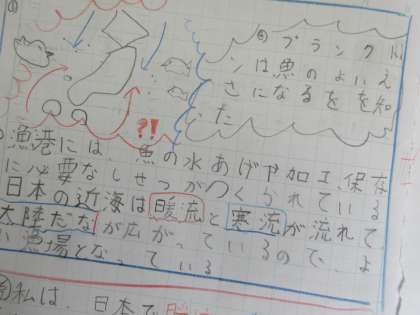 ⑥プランクト
ンは魚のよいえ
さになるをを知
た
?!
漁港には、魚の水あげや加工、保存
に必要なしせつがつくられている
日本の近海は暖流と寒流が流れて、
大陸だなが広がっているので、よ
い漁場となっている
私は、日本で